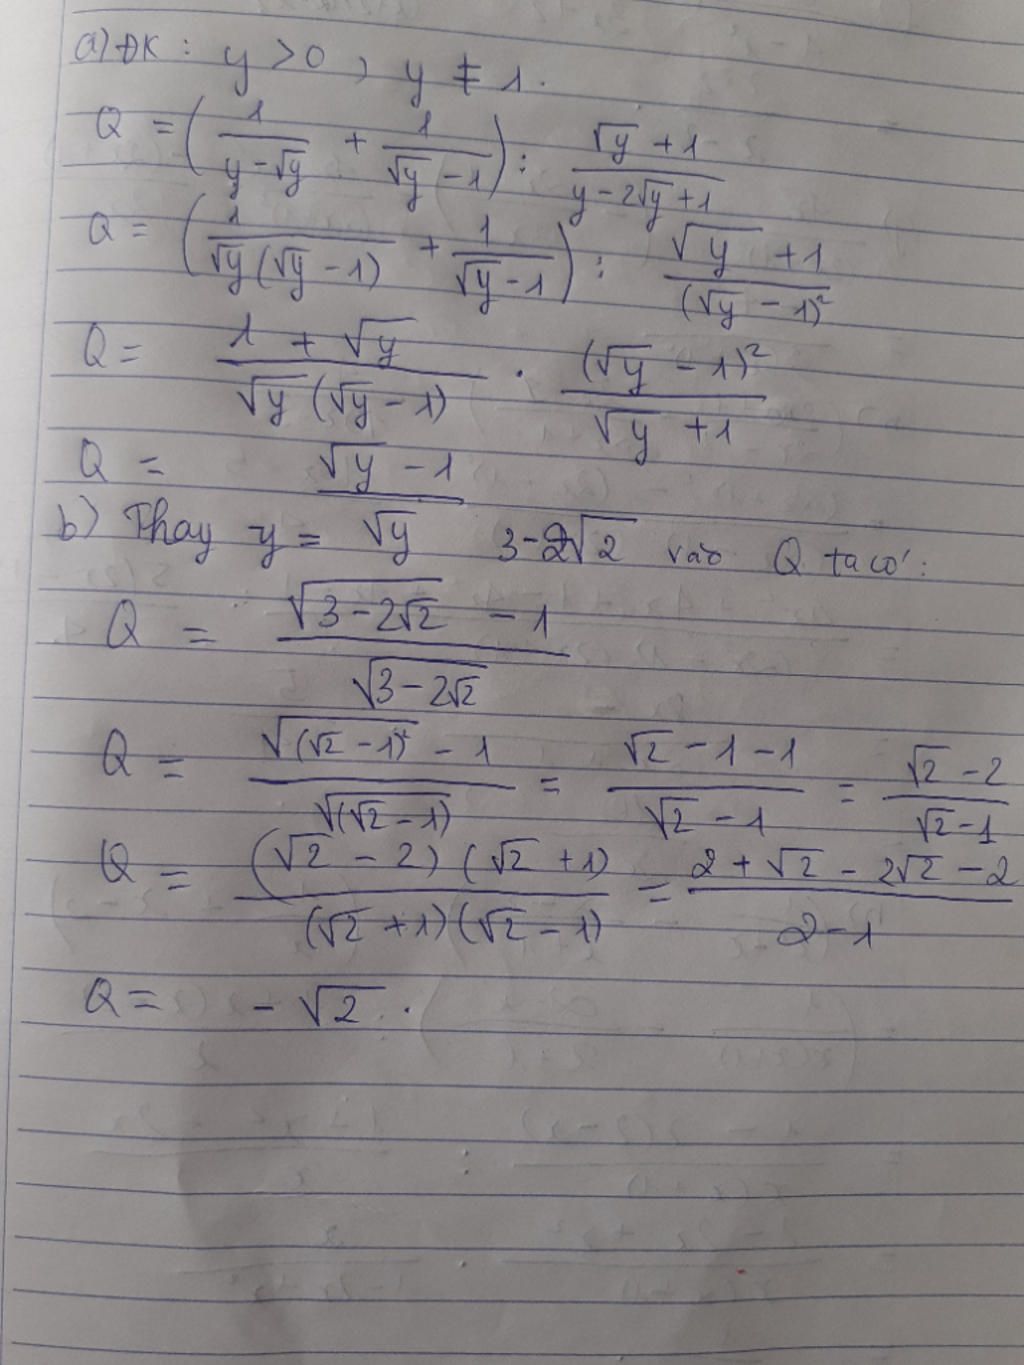 a) ĐK : y > 0 , y ≠ 1.
Q = ( 1/(y-√y) + 1/(√y -1) ) : (√y +1)/(y-2√y+1)
Q = ( 1/(√y(√y -1)) + 1/(√y-1) ) : (√y +1)/((√y -1)²)
Q = (1 + √y)/(√y (√y-1)) . (√y -1)²/(√y +1)
Q = (√y -1)/√y
b) Thay y = 3-2√2 vào Q ta có :
Q = (√(3-2√2) -1)/√(3-2√2)
Q = (√((√2 -1)²) -1)/√((√2 -1)) = (√2 -1 -1)/(√2 -1) = (√2 -2)/(√2-1)
Q = ((√2 -2) (√2 +1))/((√2 +1)(√2 -1)) = (2 + √2 - 2√2 -2)/(2-1)
Q = -√2 .